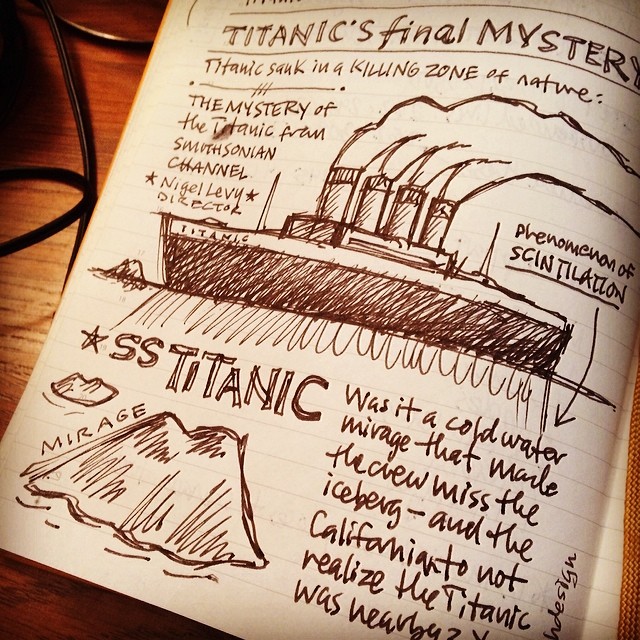 TITANIC'S final MYSTERY
Titanic sank in a KILLING ZONE of nature:
THE MYSTERY of
the Titanic from
SMITHSONIAN
CHANNEL
★ Nigel Levy ★
DIRECTOR
TITANIC
phenomenon of
SCINTILATION
★ SS TITANIC
MIRAGE
Was it a cold water
mirage that made
the crew miss the
iceberg - and the
Califanian to not
realize the Titanic
was nearby?
ndesign